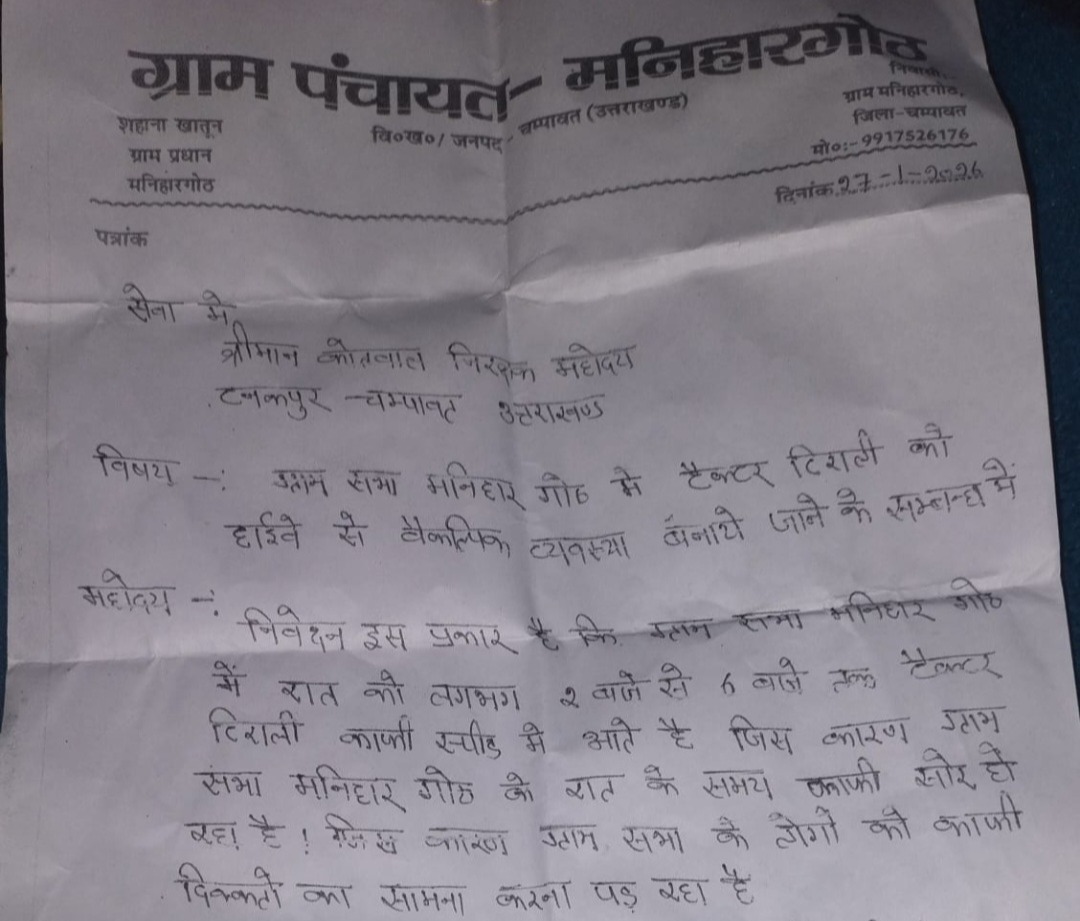 ग्राम पंचायत- मनिहारगोठ
शहाना खातून
ग्राम प्रधान
मनिहारगोठ
वि०ख०/ जनपद - चम्पावत (उत्तराखण्ड)
निवासी-
ग्राम मनिहारगोठ,
जिला-चम्पावत
मो०:-9917526176
दिनांक 27-1-2026
पत्रांक
सेवा मे
श्रीमान कोतवाल निरक्षक महोदय
टनकपुर चम्पावत उत्तराखण्ड
विषय -: ग्राम सभा मनिहार गोठ मे टैक्टर टिराली को
हाईवे से वैकल्पिक व्यवस्था बनाये जाने के सम्बन्ध में
महोदय -:
निवेदन इस प्रकार है कि ग्राम सभा मनिहार गोठ
में रात को लगभग 2 बाजे से 6 बाजे तक टैक्टर
टिराली काफी स्पीड मे आते है जिस कारण ग्राम
सभा मनिहार गोठ के रात के समय काफी सोर हो
रहा है ! जिस कारण ग्राम सभा के लोगो को काफी
दिक्कतो का सामना करना पड़ रहा है